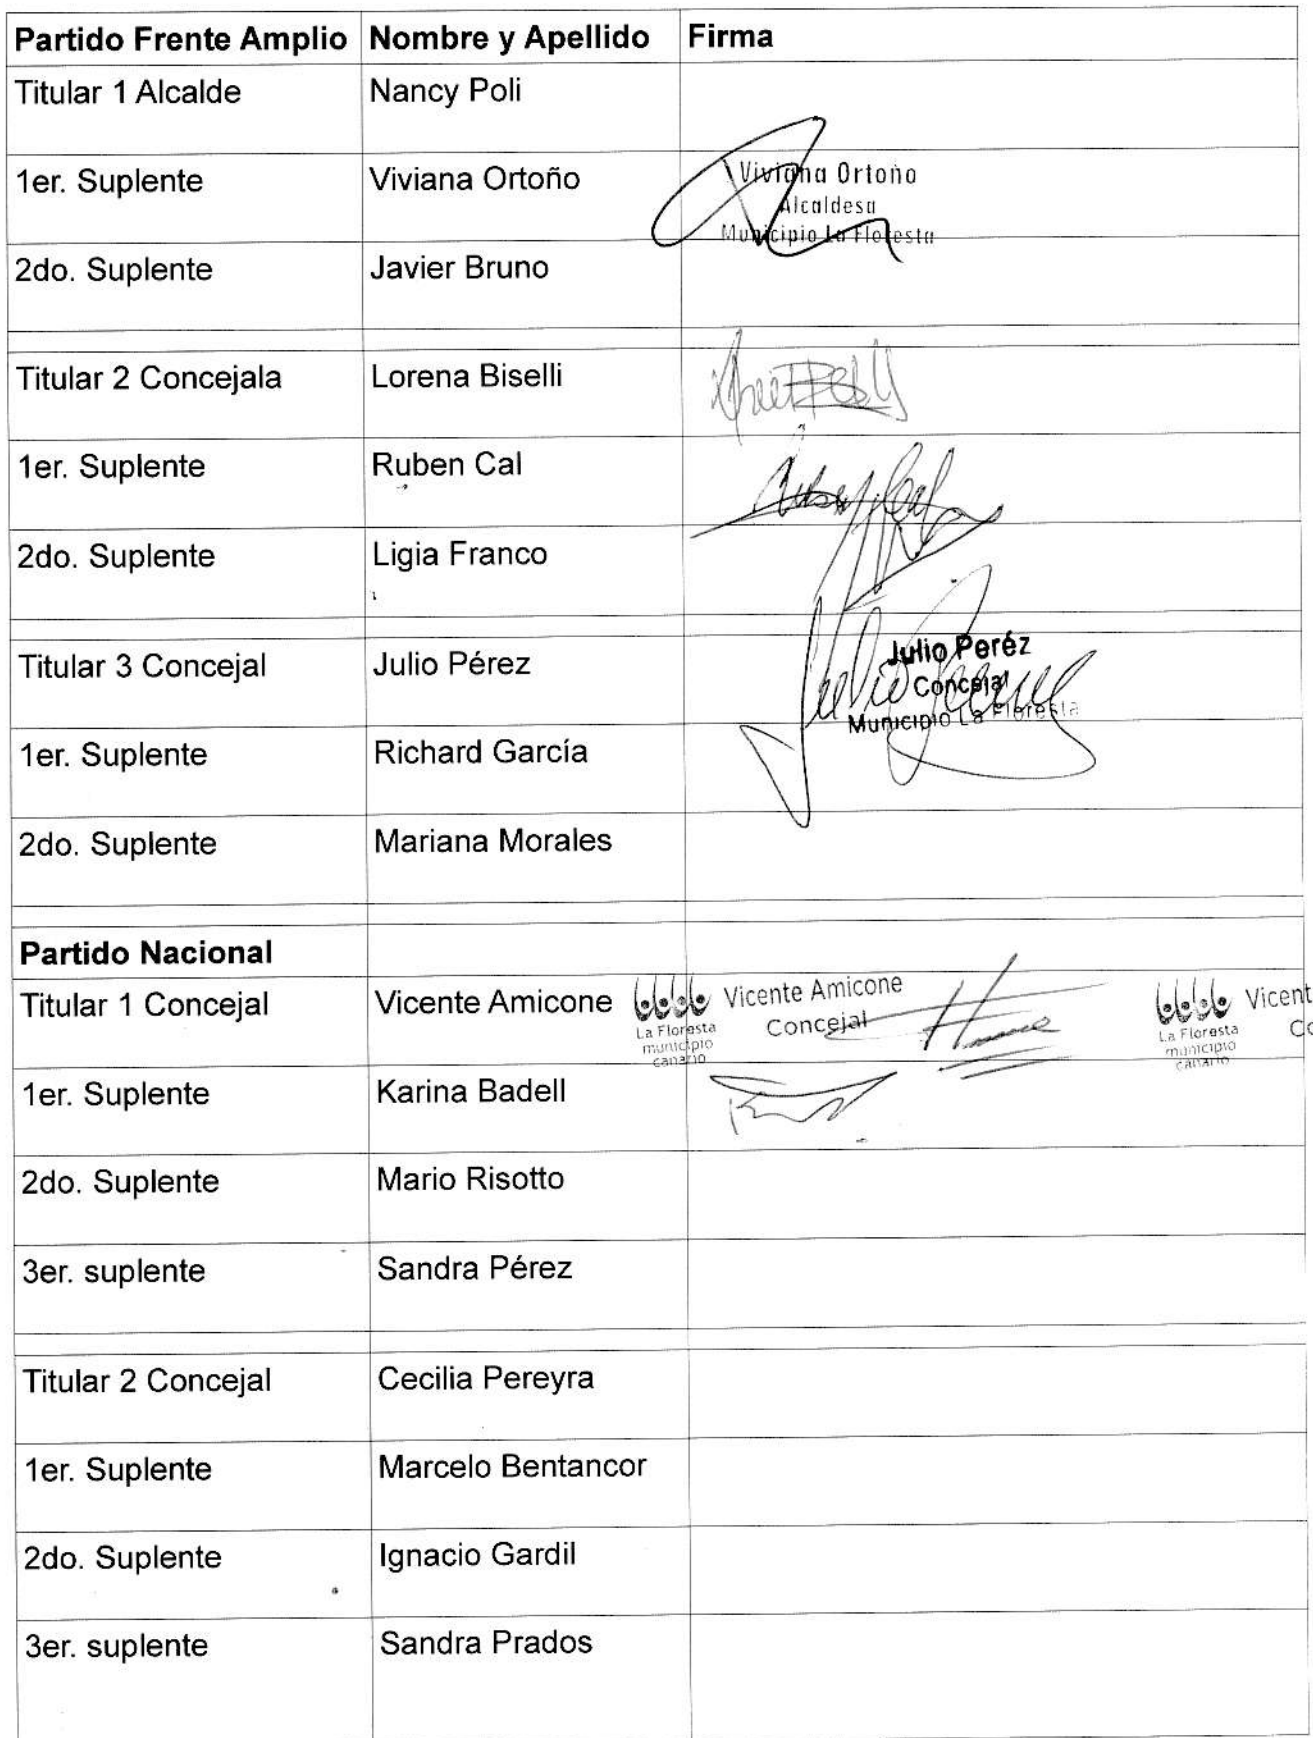 Partido Frente Amplio Nombre y Apellido Firma
Titular 1 Alcalde Nancy Poli
1er. Suplente Viviana Ortoño
Viviana Ortoño
Alcaldesa
Municipio La Floresta
2do. Suplente Javier Bruno
Titular 2 Concejala Lorena Biselli
1er. Suplente Ruben Cal
2do. Suplente Ligia Franco
Titular 3 Concejal Julio Pérez
Julio Peréz
Concejal
Municipio La Floresta
1er. Suplente Richard García
2do. Suplente Mariana Morales
Partido Nacional
Titular 1 Concejal Vicente Amicone
Vicente Amicone
Concejal
La Floresta
municipio
canario
Vicent
Co
La Floresta
municipio
canario
1er. Suplente Karina Badell
2do. Suplente Mario Risotto
3er. suplente Sandra Pérez
Titular 2 Concejal Cecilia Pereyra
1er. Suplente Marcelo Bentancor
2do. Suplente Ignacio Gardil
3er. suplente Sandra Prados